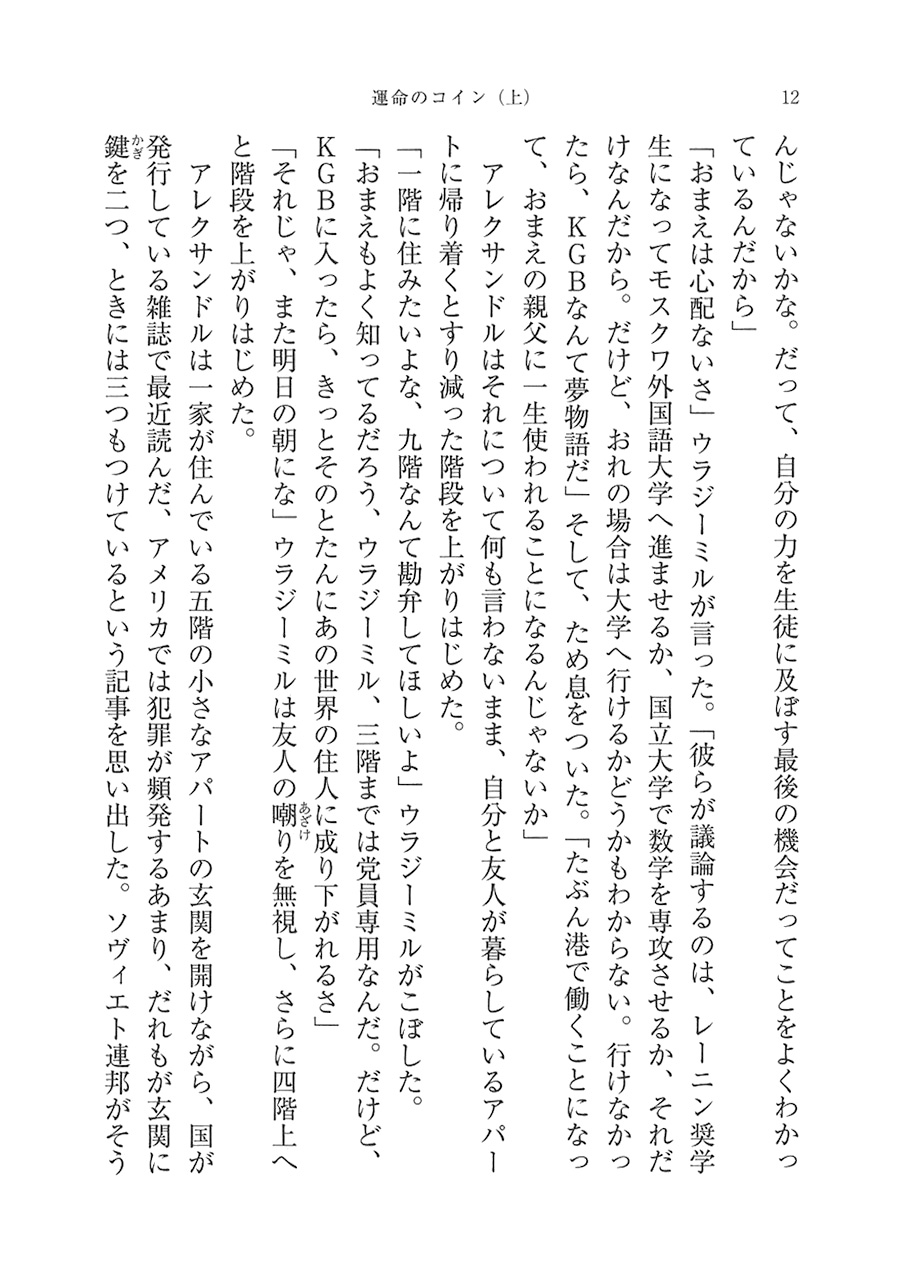 運命のコイン（上）
12
んじゃないかな。だって、自分の力を生徒に及ぼす最後の機会だってことをよくわかっ
ているんだから」
「おまえは心配ないさ」ウラジーミルが言った。「彼らが議論するのは、レーニン奨学
生になってモスクワ外国語大学へ進ませるか、国立大学で数学を専攻させるか、それだ
けなんだから。だけど、おれの場合は大学へ行けるかどうかもわからない。行けなかっ
たら、KGBなんて夢物語だ」そして、ため息をついた。「たぶん港で働くことになっ
て、おまえの親父に一生使われることになるんじゃないか」
アレクサンドルはそれについて何も言わないまま、自分と友人が暮らしているアパー
トに帰り着くとすり減った階段を上がりはじめた。
「一階に住みたいよな、九階なんて勘弁してほしいよ」ウラジーミルがこぼした。
「おまえもよく知ってるだろう、ウラジーミル、三階までは党員専用なんだ。だけど、
KGBに入ったら、きっとそのとたんにあの世界の住人に成り下がれるさ」
「それじゃ、また明日の朝にな」ウラジーミルは友人の嘲りを無視し、さらに四階上へ
あざけ
と階段を上がりはじめた。
アレクサンドルは一家が住んでいる五階の小さなアパートの玄関を開けながら、国が
発行している雑誌で最近読んだ、アメリカでは犯罪が頻発するあまり、だれもが玄関に
鍵を二つ、ときには三つもつけているという記事を思い出した。ソヴィエト連邦がそう
かぎ